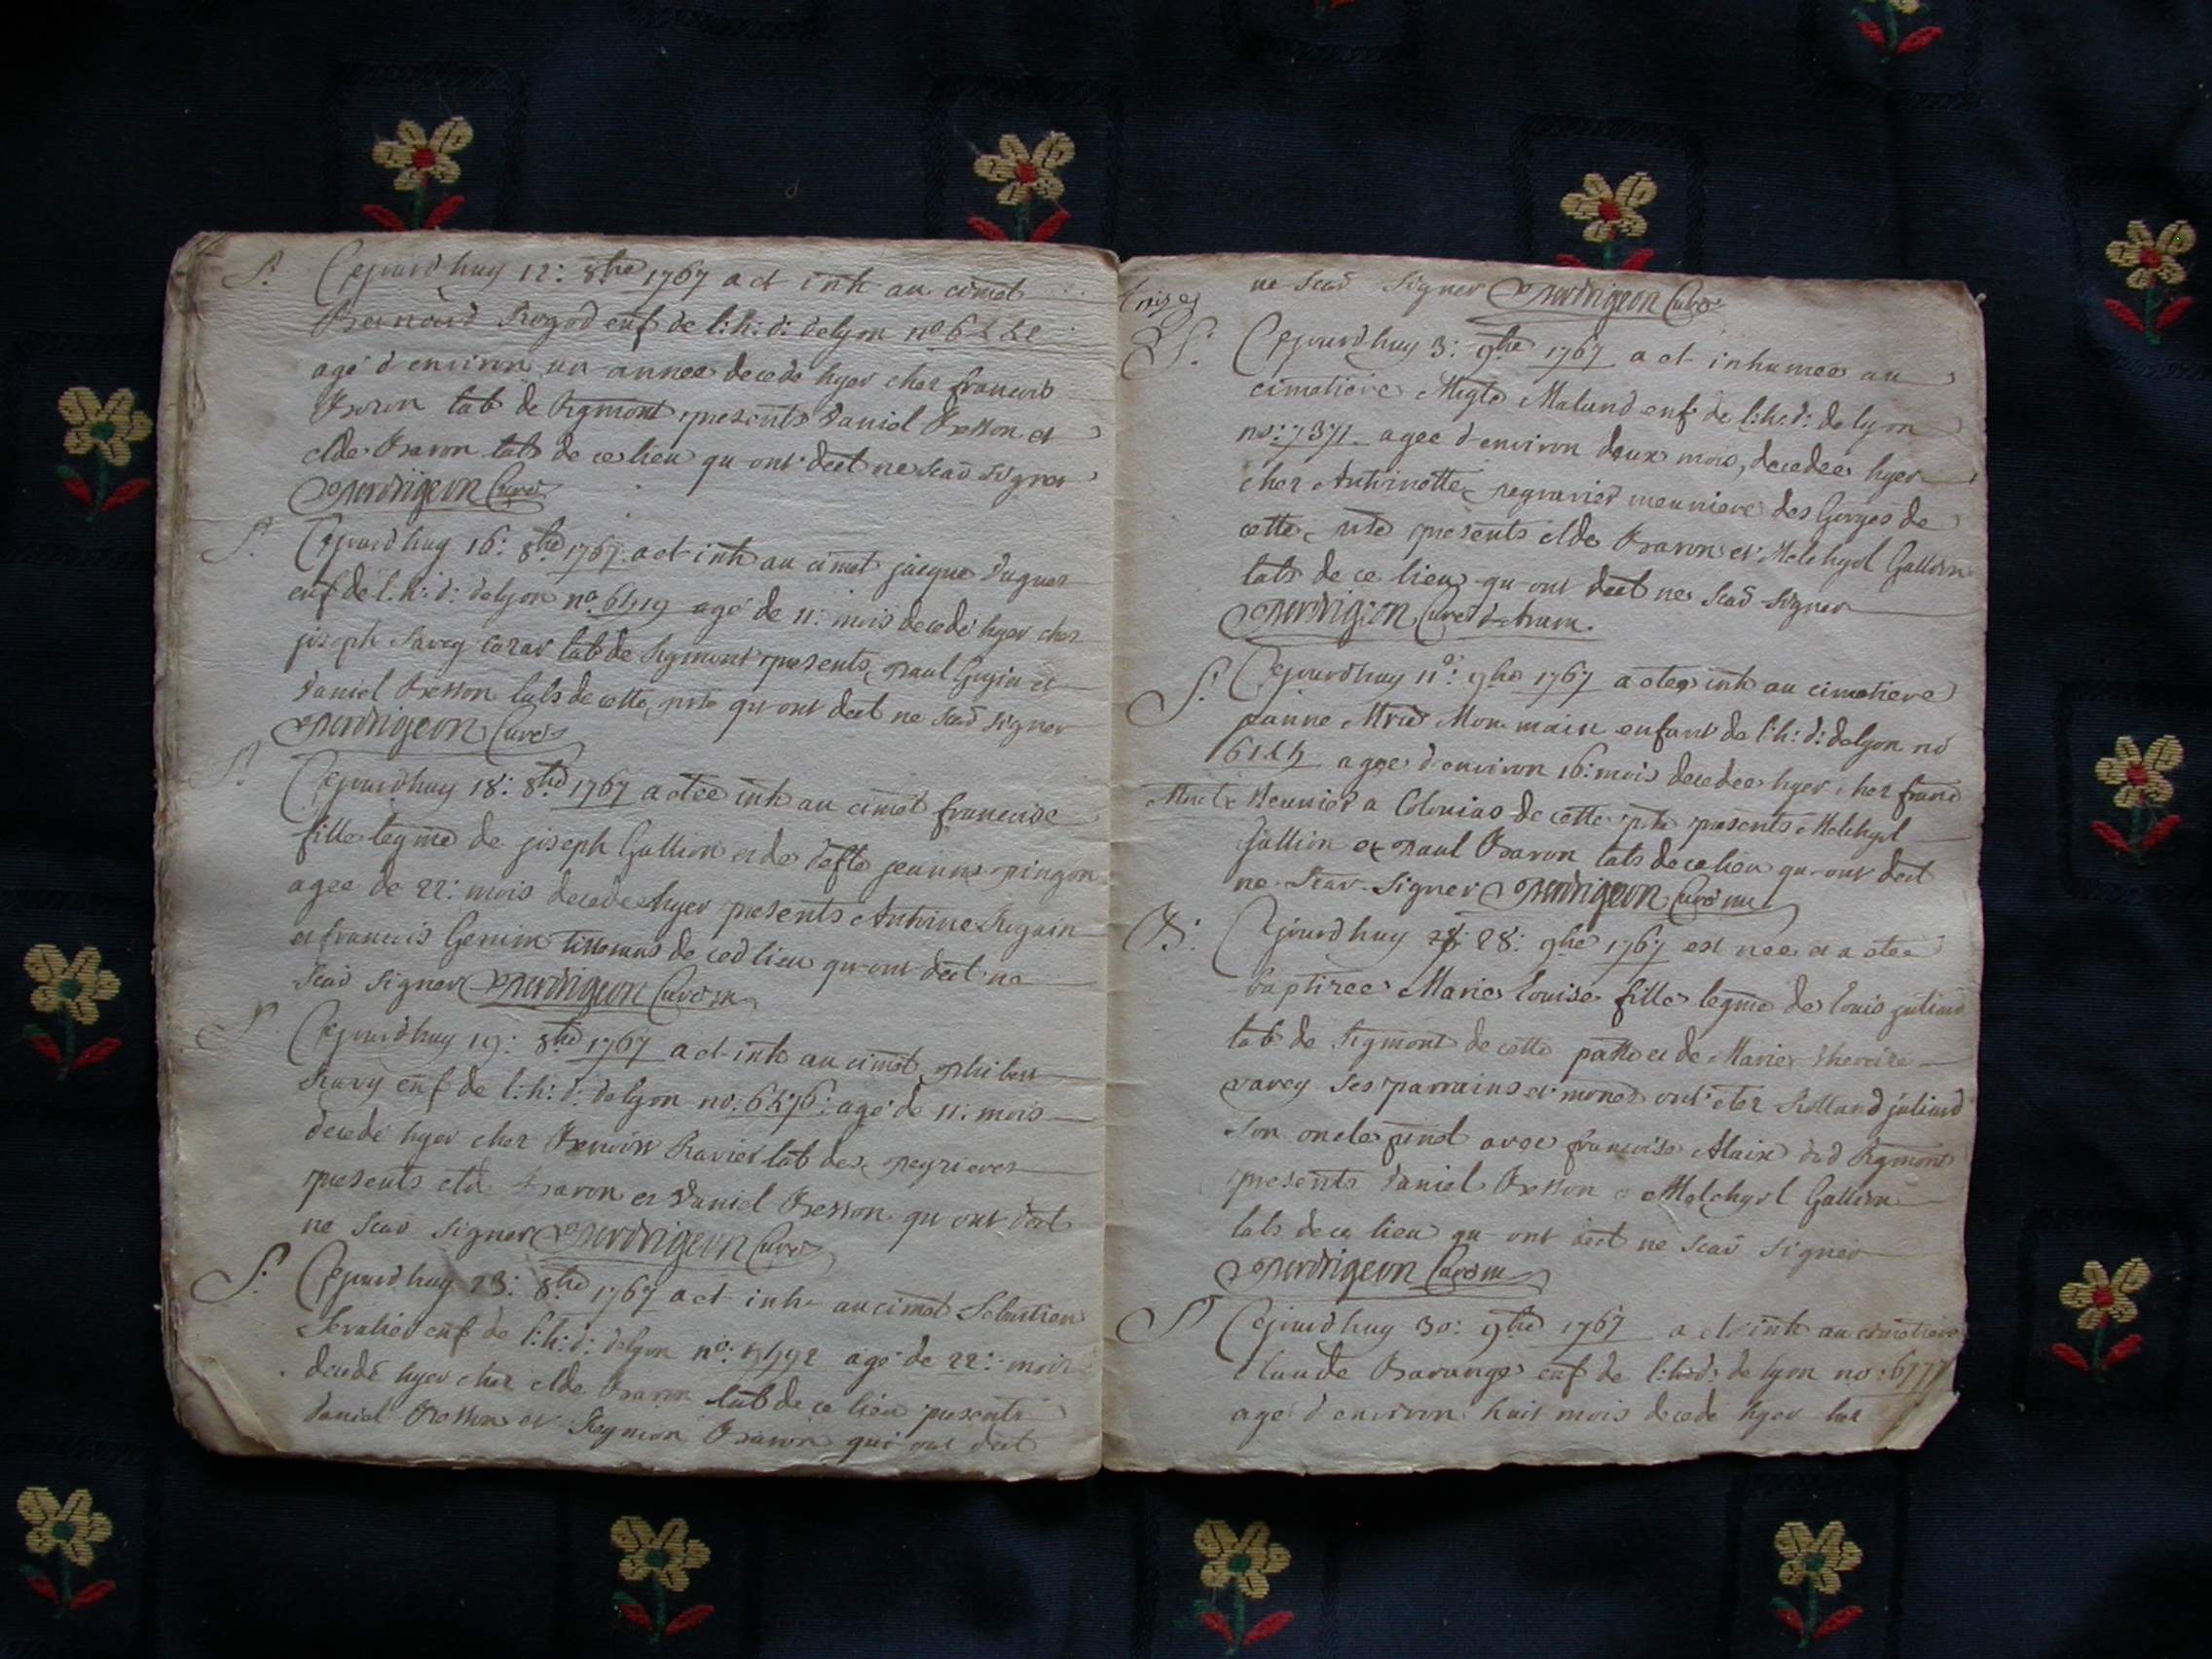 S. Cejourdhuy 12: 8bre 1767 a et inh au cimet
Bernard Rogod enf de l:h:d: delyon no
agé d environ un année decedé hyer chez francois
Baron lab de Rigmont presents daniel Besson et
clde Baron labs de ce lieu qu ont deet ne scav signer
perdrigeon Curé
S. Cejourdhuy 16: 8bre 1767 a et inh au cimet jacque dugner
enf de l:h:d: delyon no agé de 11: mois decedé hyer chez
joseph Savey lab de Rigmont presents paul et
daniel Besson labs de cette qu ont deet ne scav signer
perdrigeon Curé
S. Cejourdhuy 18: 8bre 1767 a etée inh au cimet francoise
fille legme de joseph Gallion et de defte jeanne pingon
agee de 22: mois decedee hyer presents Anthoine Sugain
et francois Genin tisserans de ced lieu qu ont deet ne
scav signer perdrigeon Curé
S. Cejourdhuy 19: 8bre 1767 a et inh au cimet philber
Ravy enf de l:h:d: delyon no: 6476: agé de 11: mois
decedé hyer chez Benoin Ravier lab des peyrieres
presents clde Baron et daniel Besson qu ont deet
ne scav signer perdrigeon Curé
S. Cejourdhuy 23: 8bre 1767 a et inh au cimet Sebastien
enf de l:h:d: delyon no: agé de 22: mois
decedé hyer chez clde Baron lab de ce lieu presents
daniel Besson et Reymon Baron qui ont deet
ne scav signer perdrigeon Curé
S. Cejourdhuy 3: 9bre 1767 a et inhumee au
cimetiere Magte Malund enf de l:h:d: de lyon
no: 7371 agee d environ deux mois, decedee hyer
chez Anthinotte meuniere des Gorges de
cette presents clde Baron et Melchyol Gallion
labs de ce lieu qu ont deet ne scav signer
perdrigeon Curé
S. Cejourdhuy 11: 9bre 1767 a etee inh au cimetiere
janne enfant de l:h:d: delyon no
agee d environ 16: mois decedee hyer chez
Meunier a Colonias de cette presents Melchyol
Gallion et paul Baron labs de ce lieu qu ont deet
ne scav signer perdrigeon Curé
B: Cejourdhuy 28: 9bre 1767 est nee et a etee
baptizee Marie louise fille legme de louis juliard
lab de Rigmont de cette et de Marie therese
varey ses parrains et ont etez Rolland juliard
son oncle avec francoise Alaix dud Rigmont
presents daniel Besson e Melchyol Gallion
labs de ce lieu qu ont deet ne scav signer
perdrigeon Curé
S. Cejourdhuy 30: 9bre 1767 a et inh au cimetiere
Claude Barange enf de l:h:d: de lyon no: 6777
agé d environ huit mois decedé hyer chez